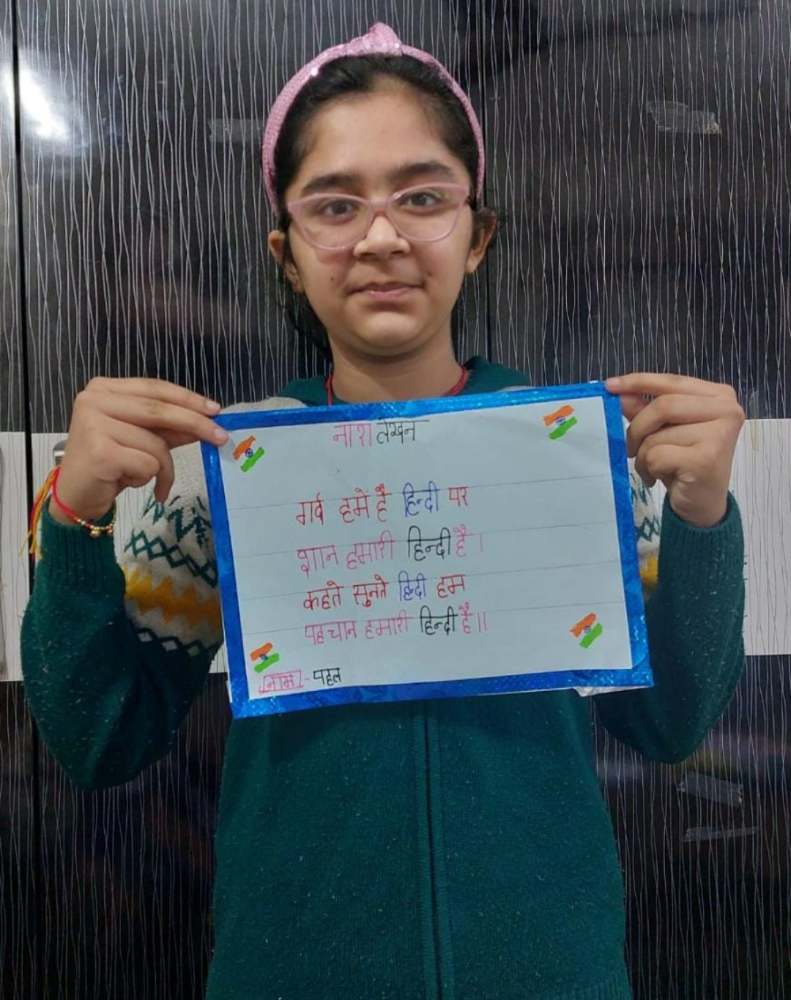 नारा लेखन
गर्व हमें है हिन्दी पर
शान हमारी हिन्दी है।
कहते सुनते हिंदी हम
पहचान हमारी हिन्दी है॥
नाम - पहल